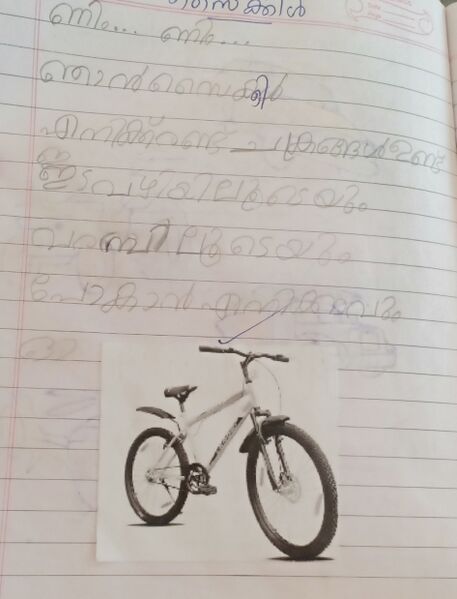 സൈക്കിൾ
ണിം... ണിം...
ഞാൻ സൈക്കിൾ
എനിക്ക് രണ്ട് ചക്രങ്ങൾ ഉണ്ട്
ഇടവഴിയിലൂടെയും
വരമ്പിലൂടെയും
പോകാൻ എനിക്കാവും